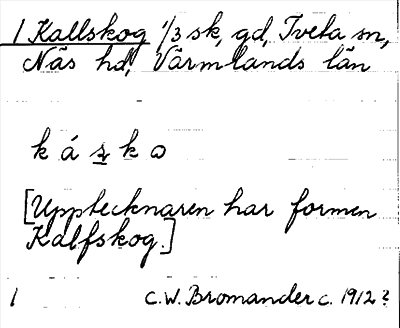 1 Kallskog 1/3 sk, gd, Tveta sn,
Näs hd, Värmlands län
k á s k ω
[Upptecknaren har formen
Kalfskog.]
1 C.W. Bromander c. 1912?